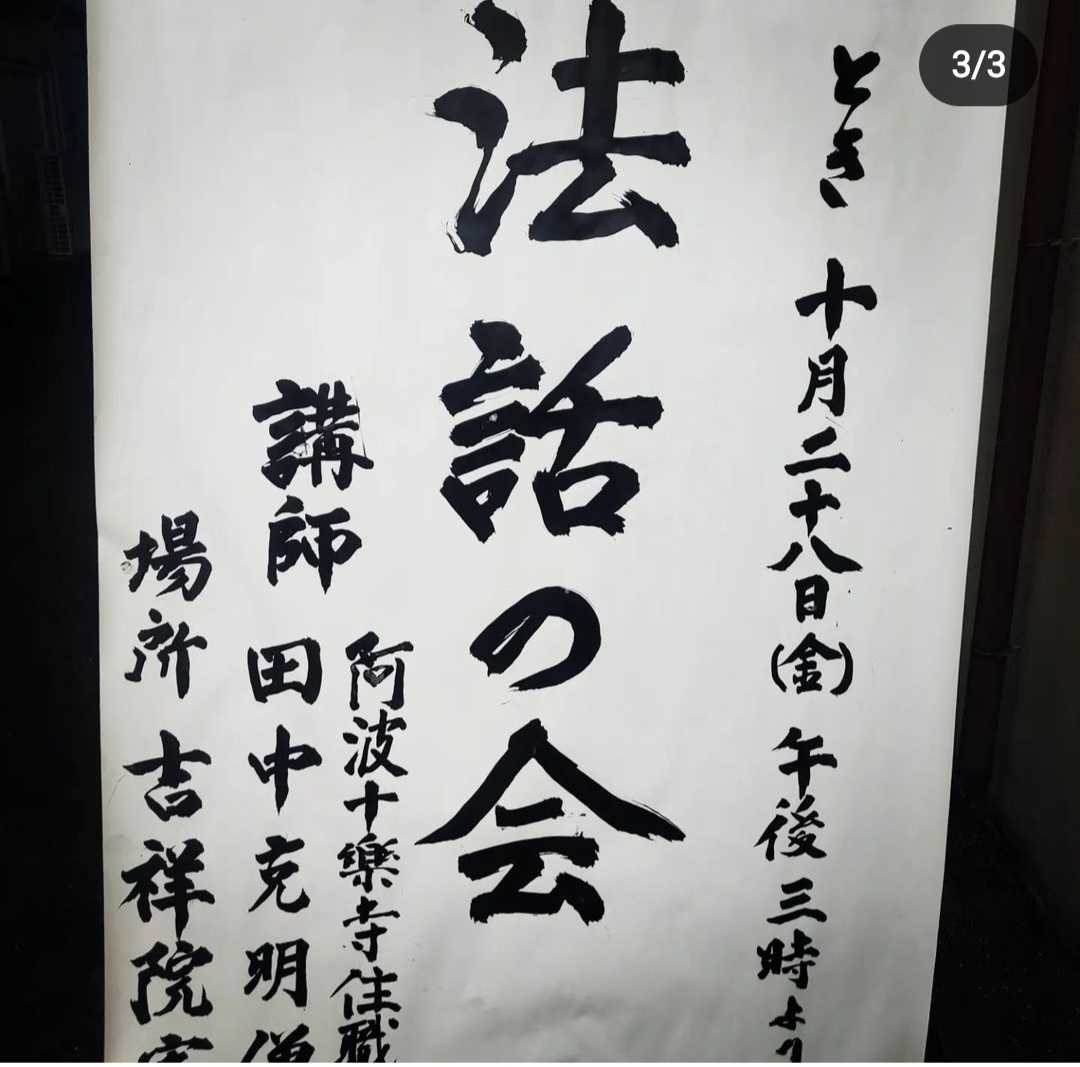 3/3
とき 十月二十八日(金) 午後三時より
法話の会
阿波十樂寺住職
講師 田中克明僧
場所 吉祥院